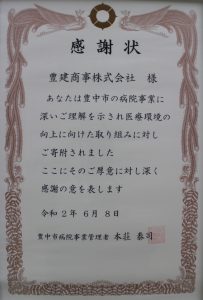 感謝状
豊建商事株式会社 様
あなたは豊中市の病院事業に
深いご理解を示され医療環境の
向上に向けた取り組みに対し
ご寄附されました
ここにそのご厚意に対し深く
感謝の意を表します
令和2年6月8日
豊中市病院事業管理者 本荘泰司